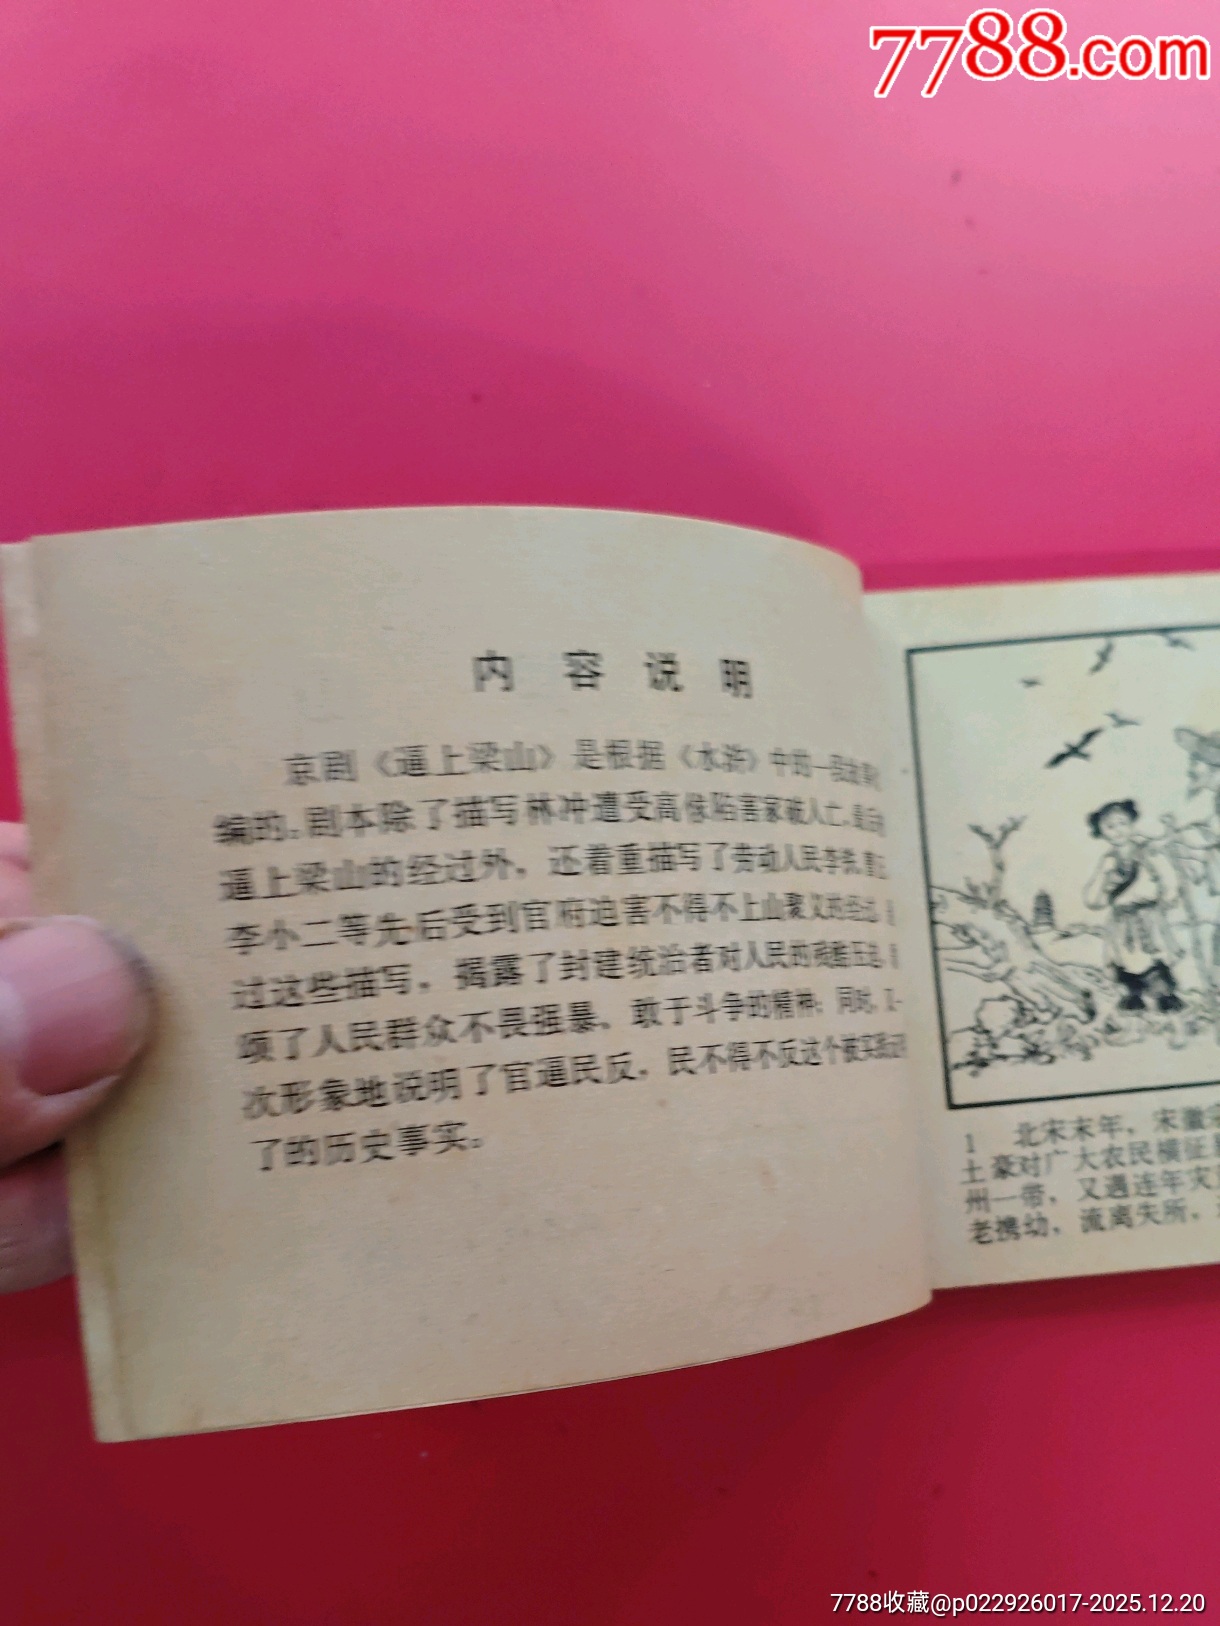 7788.com
内容说明
京剧《逼上梁山》是根据《水浒》中的一段故事
编的。剧本除了描写林冲遭受高俅陷害家破人亡、最后
逼上梁山的经过外，还着重描写了劳动人民李铁、曹正、
李小二等先后受到官府迫害不得不上山聚义的经过。
过这些描写，揭露了封建统治者对人民的残酷压迫，
颂了人民群众不畏强暴，敢于斗争的精神；同时，又一
次形象地说明了官逼民反，民不得不反这个被实践证明
了的历史事实。
1 北宋末年，宋徽宗
土豪对广大农民横征
州一带，又遇连年灾
老携幼，流离失所，
7788收藏@p022926017-2025.12.20